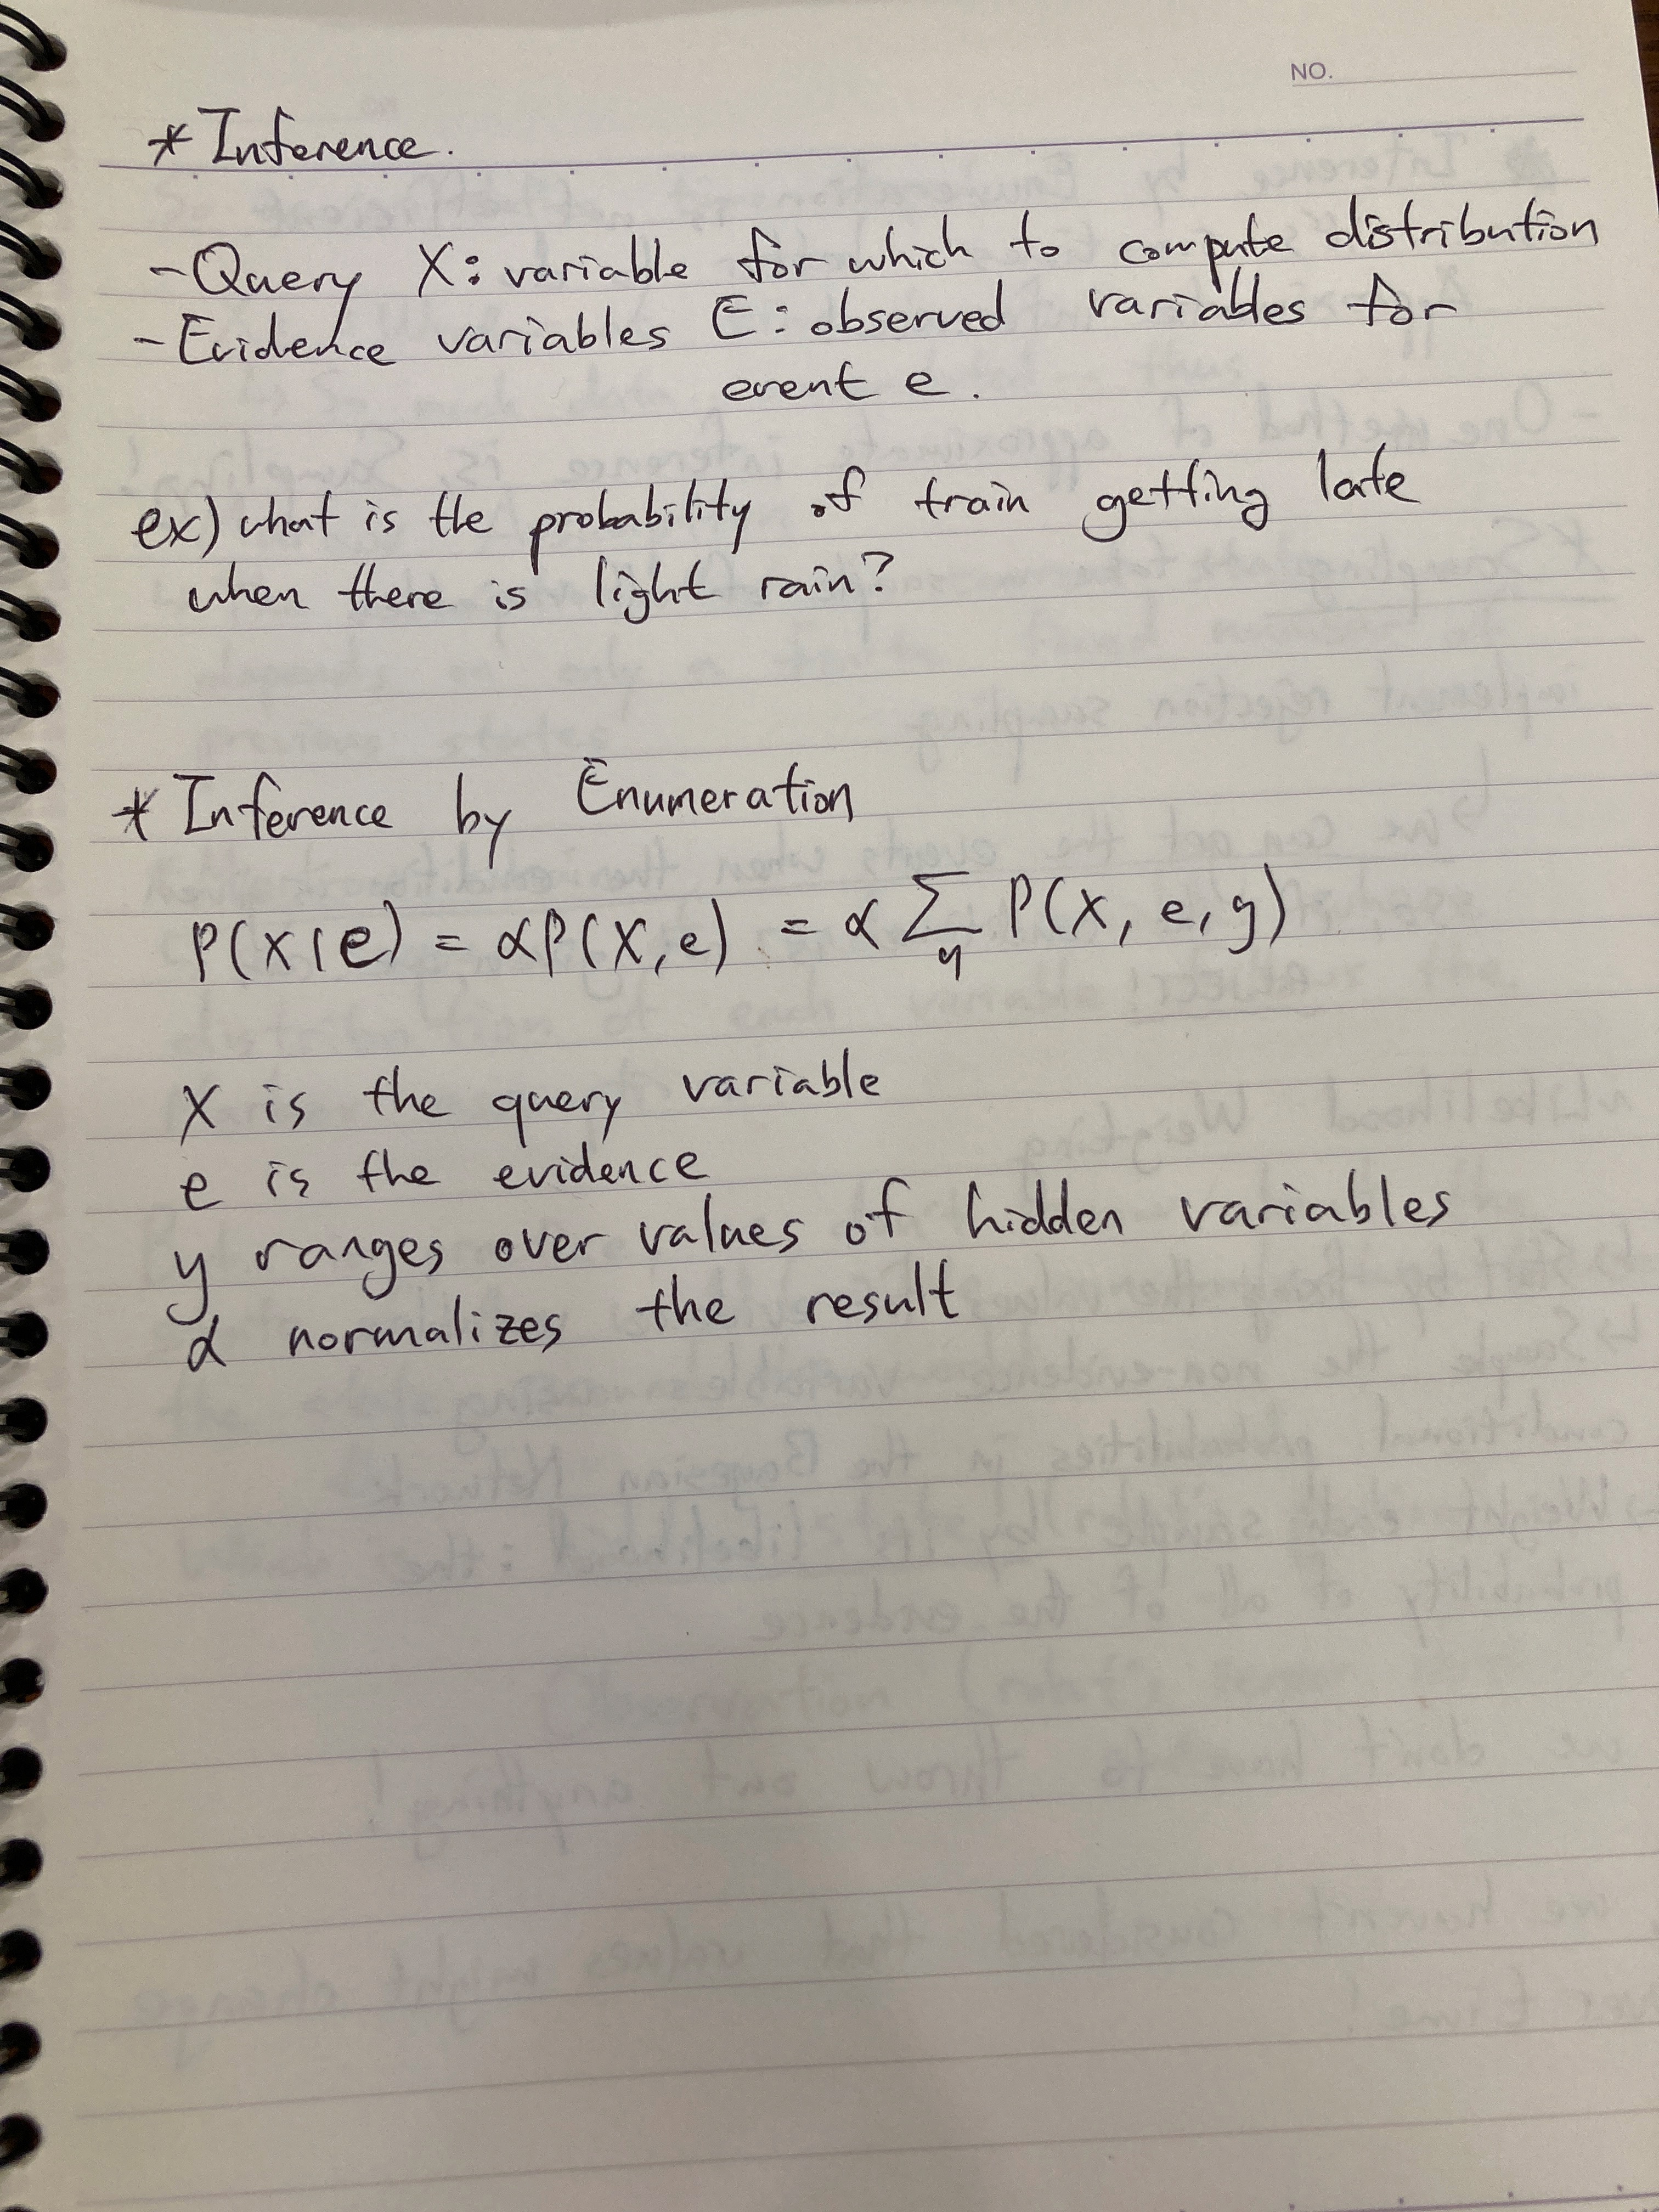 NO.
* Inference.
- Query X: variable for which to compute distribution
- Evidence variables E: observed variables for
event e.
ex) what is the probability of train getting late
when there is light rain?
* Inference by Enumeration
P(X|e) = αP(X,e) = α ∑ P(X, e, y)
y
X is the query variable
e is the evidence
y ranges over values of hidden variables
α normalizes the result